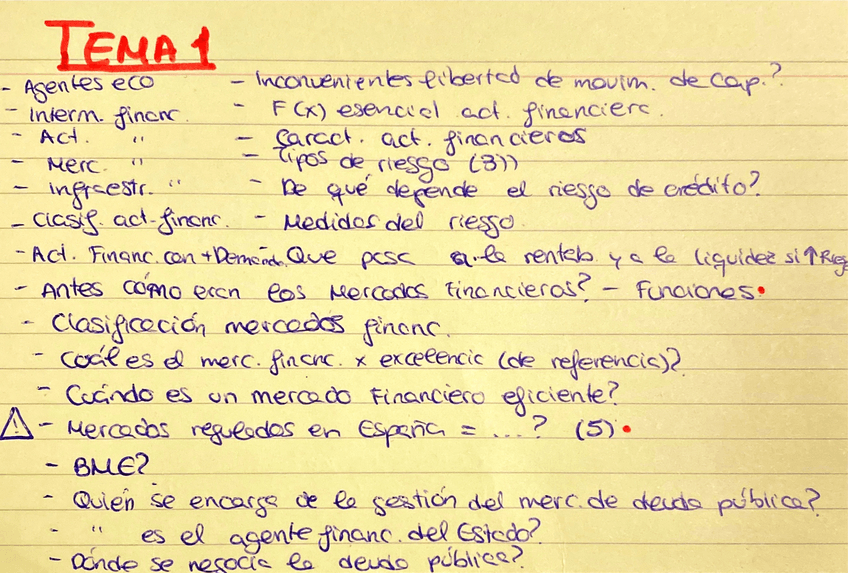 TEMA 1
- Agentes eco - Inconvenientes libertad de movim. de cap.?
- Interm. financ. - F(x) esencial act. financiera.
- Act. " - Caract. act. financieros
- Merc. " - Tipos de riesgo (3))
- Infraestr. " - De qué depende el riesgo de crédito?
- Clasif. act. financ. - Medidas del riesgo.
- Act. Financ. con + Demanda. Que pasa a la rentab. y a la liquidez si ↑ Riesg
- Antes cómo eran los Mercados Financieros? - Funciones.
- Clasificación mercados financ.
- Cuál es el merc. financ. x excelencia (de referencia)?
- Cuándo es un mercado Financiero eficiente?
⚠ - Mercados regulados en España = ...? (5)
- BME?
- Quién se encarga de la gestión del merc. de deuda pública?
- " es el agente financ. del Estado?
- Dónde se negocia la deuda pública?